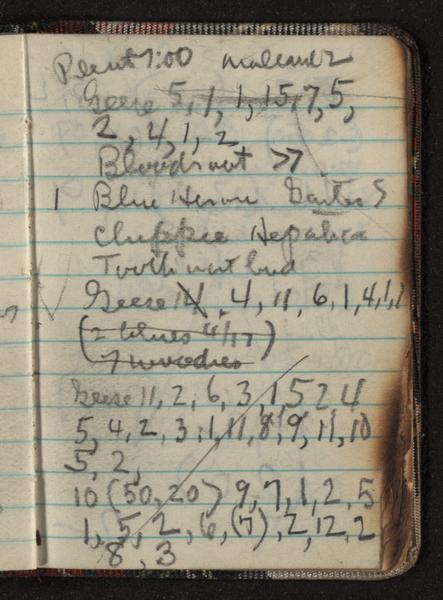 7:00 mallard 2
Geese 5, 1, 1, 15, 7, 5,
2, 4, 1, 2
Bloodroot >7
1 Blue Heron 5
Chippie Hepatica
Toothwort bud
Geese 4, 11, 6, 1, 4, 1, 1
(2 blues 4/17)
7 woodies
Geese 11, 2, 6, 3, 1, 5 2 4
5, 4, 2, 3, 1, 11, 8, 9, 11, 10
5, 2,
10 (50, 20) 9, 7, 1, 2, 5
1, 5, 2, 6, (7), 2, 12, 2
8, 3